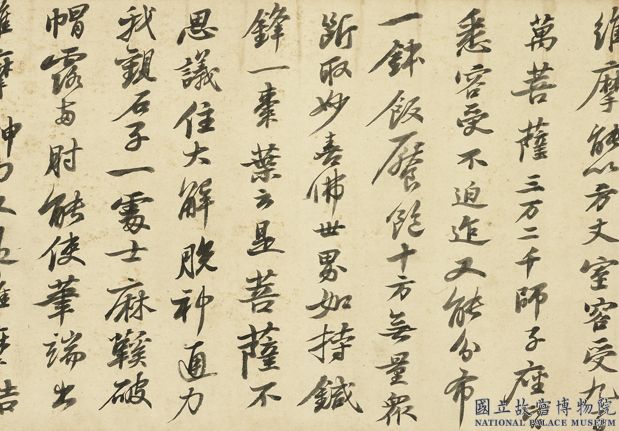 維摩能以方丈室容受九
萬菩薩三万二千師子座
悉容受不迫迮又能分布
一鉢飯饜飽十方無量眾
斷取妙喜佛世界如持鍼
鋒一棗葉云是菩薩不
思議住大解脫神通力
我觀石子一處士麻鞵破
帽露兩肘能使筆端出
維摩神力又過維摩詰
國立故宮博物院
NATIONAL PALACE MUSEUM